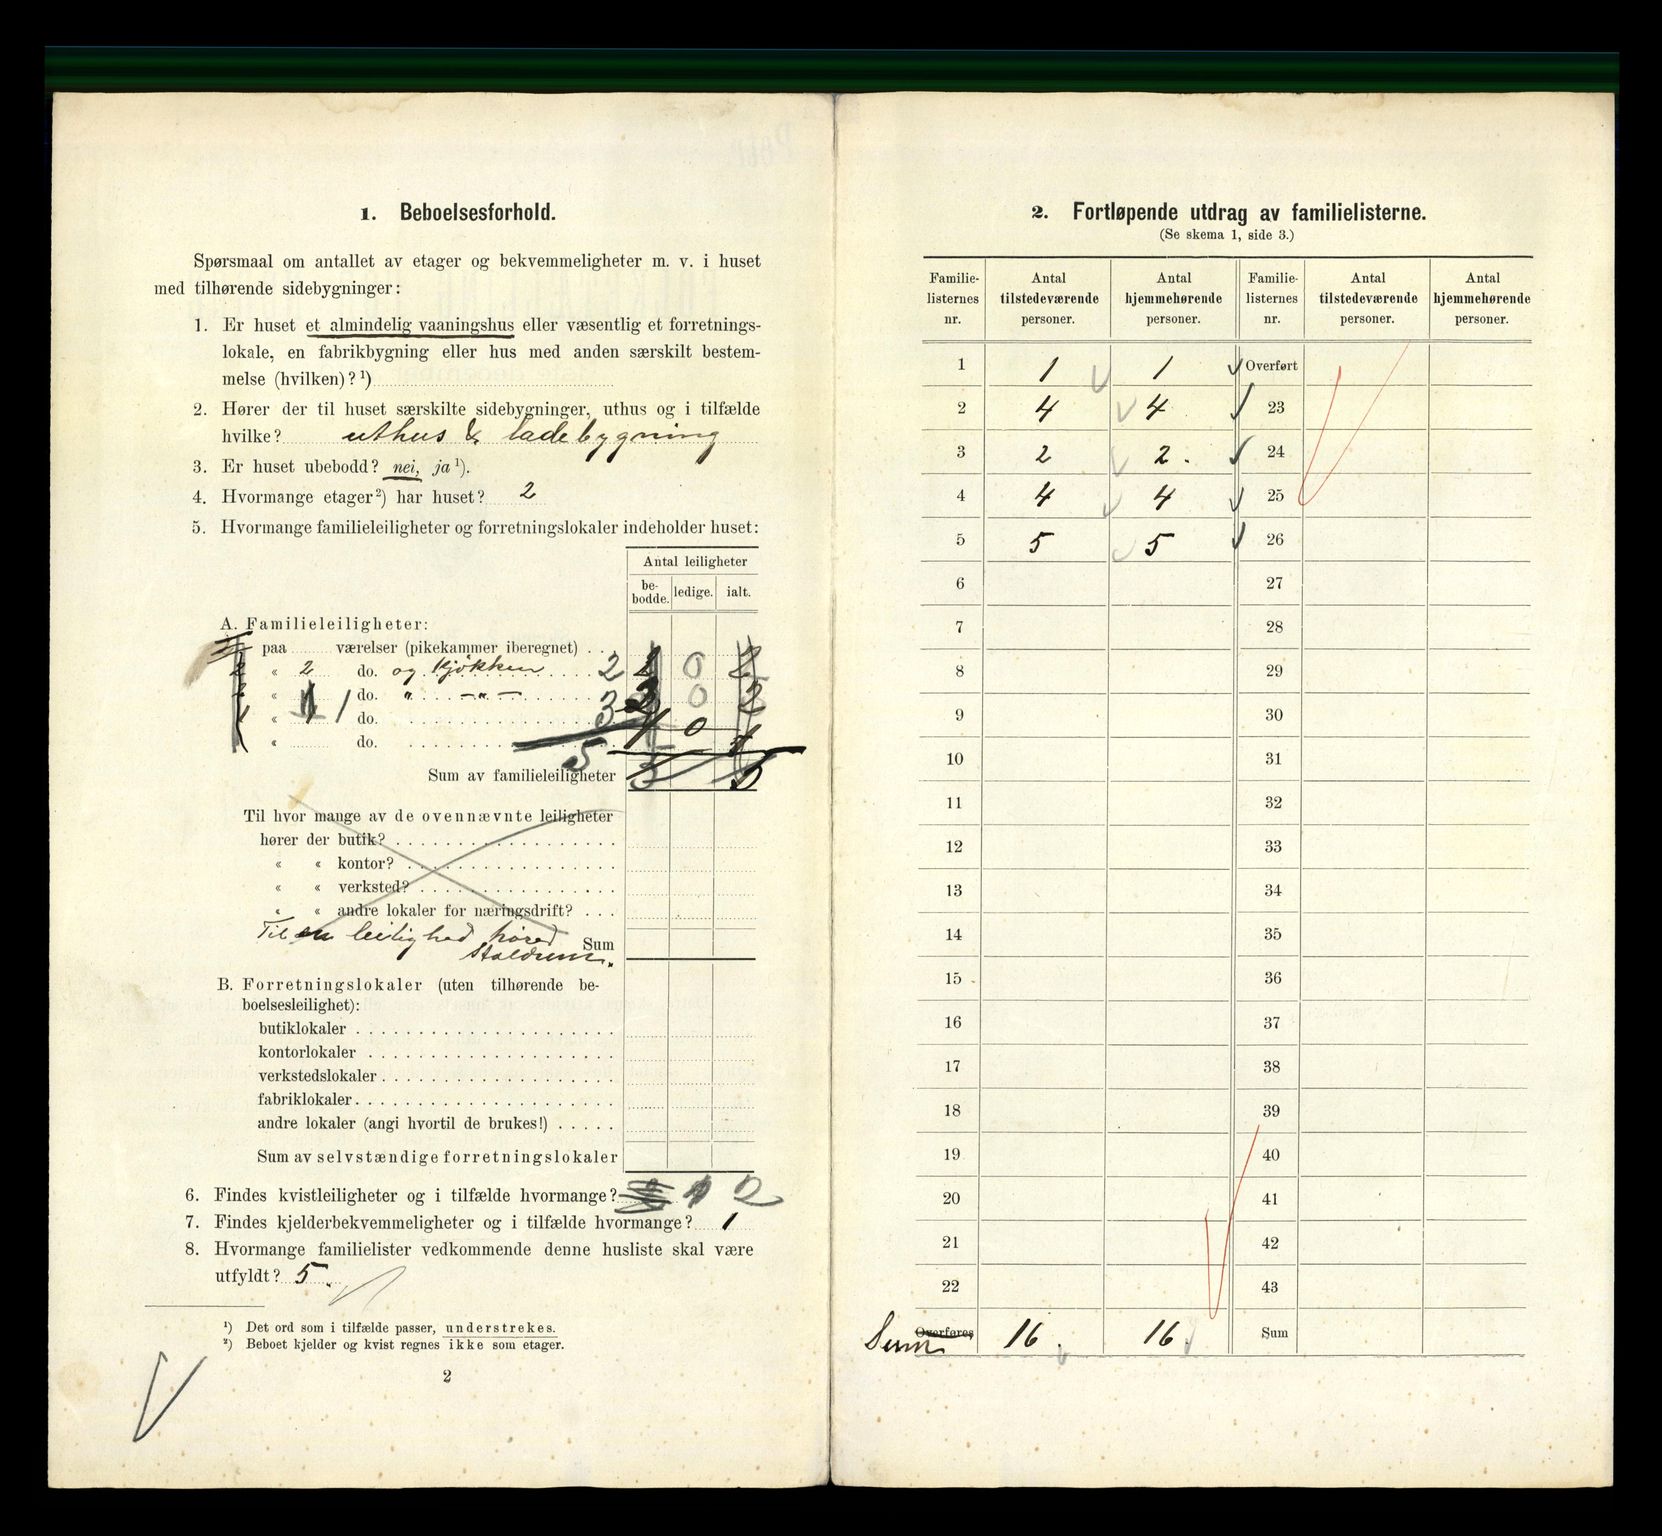 1. Beboelsesforhold.
Spørsmaal om antallet av etager og bekvemmeligheter m. v. i huset
med tilhørende sidebygninger:
1. Er huset et almindelig vaaningshus eller væsentlig et forretnings-
lokale, en fabrikbygning eller hus med anden særskilt bestem-
melse (hvilken)? ¹)
2. Hører der til huset særskilte sidebygninger, uthus og i tilfælde
hvilke? uthus & ladebygning
3. Er huset ubebodd? nei, ja ¹).
4. Hvormange etager ²) har huset? 2
5. Hvormange familieleiligheter og forretningslokaler indeholder huset:
Antal leiligheter
be-
bodde. ledige. ialt.
A. Familieleiligheter:
paa værelser (pikekammer iberegnet)
2 « 2 do. og kjøkken 2 2 0 2
« 1 do. " —"— 3 0 2
1 « do. 1 0 1
« do.
5
Sum av familieleiligheter 5 5
Til hvor mange av de ovennævnte leiligheter
hører der butik?
« « kontor?
« « verksted?
« « andre lokaler for næringsdrift?
Til en leilighed hører
Sum
Staldrum.
B. Forretningslokaler (uten tilhørende be-
boelsesleilighet):
butiklokaler
kontorlokaler
verkstedslokaler
fabriklokaler
andre lokaler (angi hvortil de brukes!)
Sum av selvstændige forretningslokaler
6. Findes kvistleiligheter og i tilfælde hvormange? 2
7. Findes kjelderbekvemmeligheter og i tilfælde hvormange? 1
8. Hvormange familielister vedkommende denne husliste skal være
utfyldt? 5.
¹) Det ord som i tilfælde passer, understrekes.
²) Beboet kjelder og kvist regnes ikke som etager.
2
2. Fortløpende utdrag av familielisterne.
(Se skema 1, side 3.)
Familie-
listernes
nr. Antal
tilstedeværende
personer. Antal
hjemmehørende
personer. Familie-
listernes
nr. Antal
tilstedeværende
personer. Antal
hjemmehørende
personer.
1 1 1 Overført
2 4 4 23
3 2 2. 24
4 4 4 25
5 5 5 26
6 27
7 28
8 29
9 30
10 31
11 32
12 33
13 34
14 35
15 36
16 37
17 38
18 39
19 40
20 41
21 42
22 43
Sum Overføres 16. 16 Sum